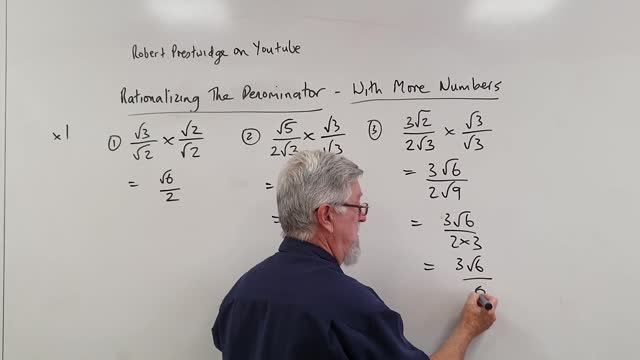 Robert Prestwidge on Youtube
Rationalizing The Denominator - With More Numbers
x1
① √3/√2 × √2/√2
= √6/2
② √5/2√3 × √3/√3
=
=
③ 3√2/2√3 × √3/√3
= 3√6/2√9
= 3√6/2×3
= 3√6/6